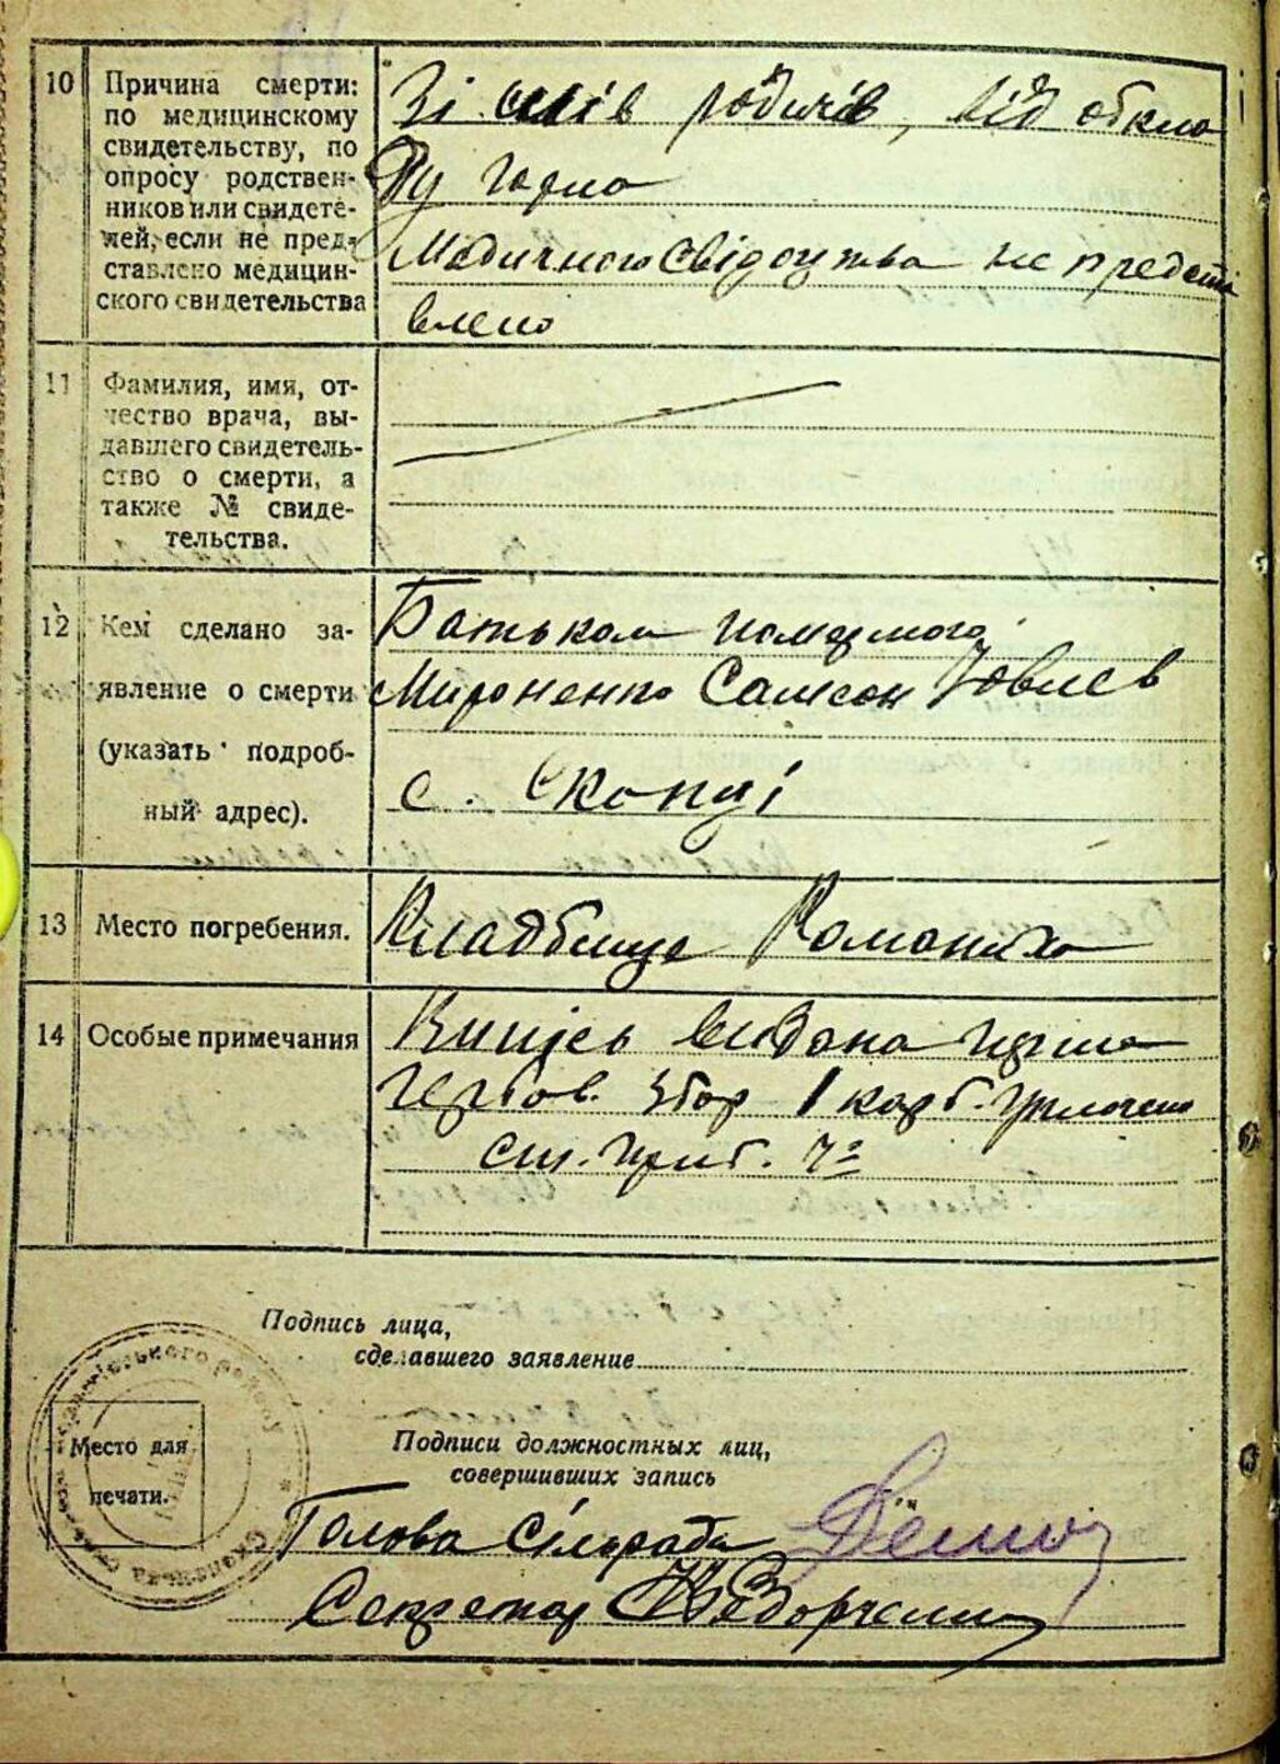 10
Причина смерти:
по медицинскому
свидетельству, по
опросу родствен-
ников или свидете-
лей, если не пред-
ставлено медицин-
ского свидетельства
Зі слів родичів, від обкла
ду горла
Медичного свідоцтва не предста
влено
11
Фамилия, имя, от-
чество врача, вы-
давшего свидетель-
ство о смерти, а
также № свиде-
тельства.
12
Кем сделано за-
явление о смерти
(указать подроб-
ный адрес).
Батьком померлого
Мироненко Самсон Иовлев
с. Скопці
13
Место погребения.
Кладбище Романиха
14
Особые примечания
видана перша
гербов. збор 1 карб.
7
Подпись лица,
сделавшего заявление
Подписи должностных лиц,
совершивших запись
Место для
печати.
Голова Сільради
Секретар